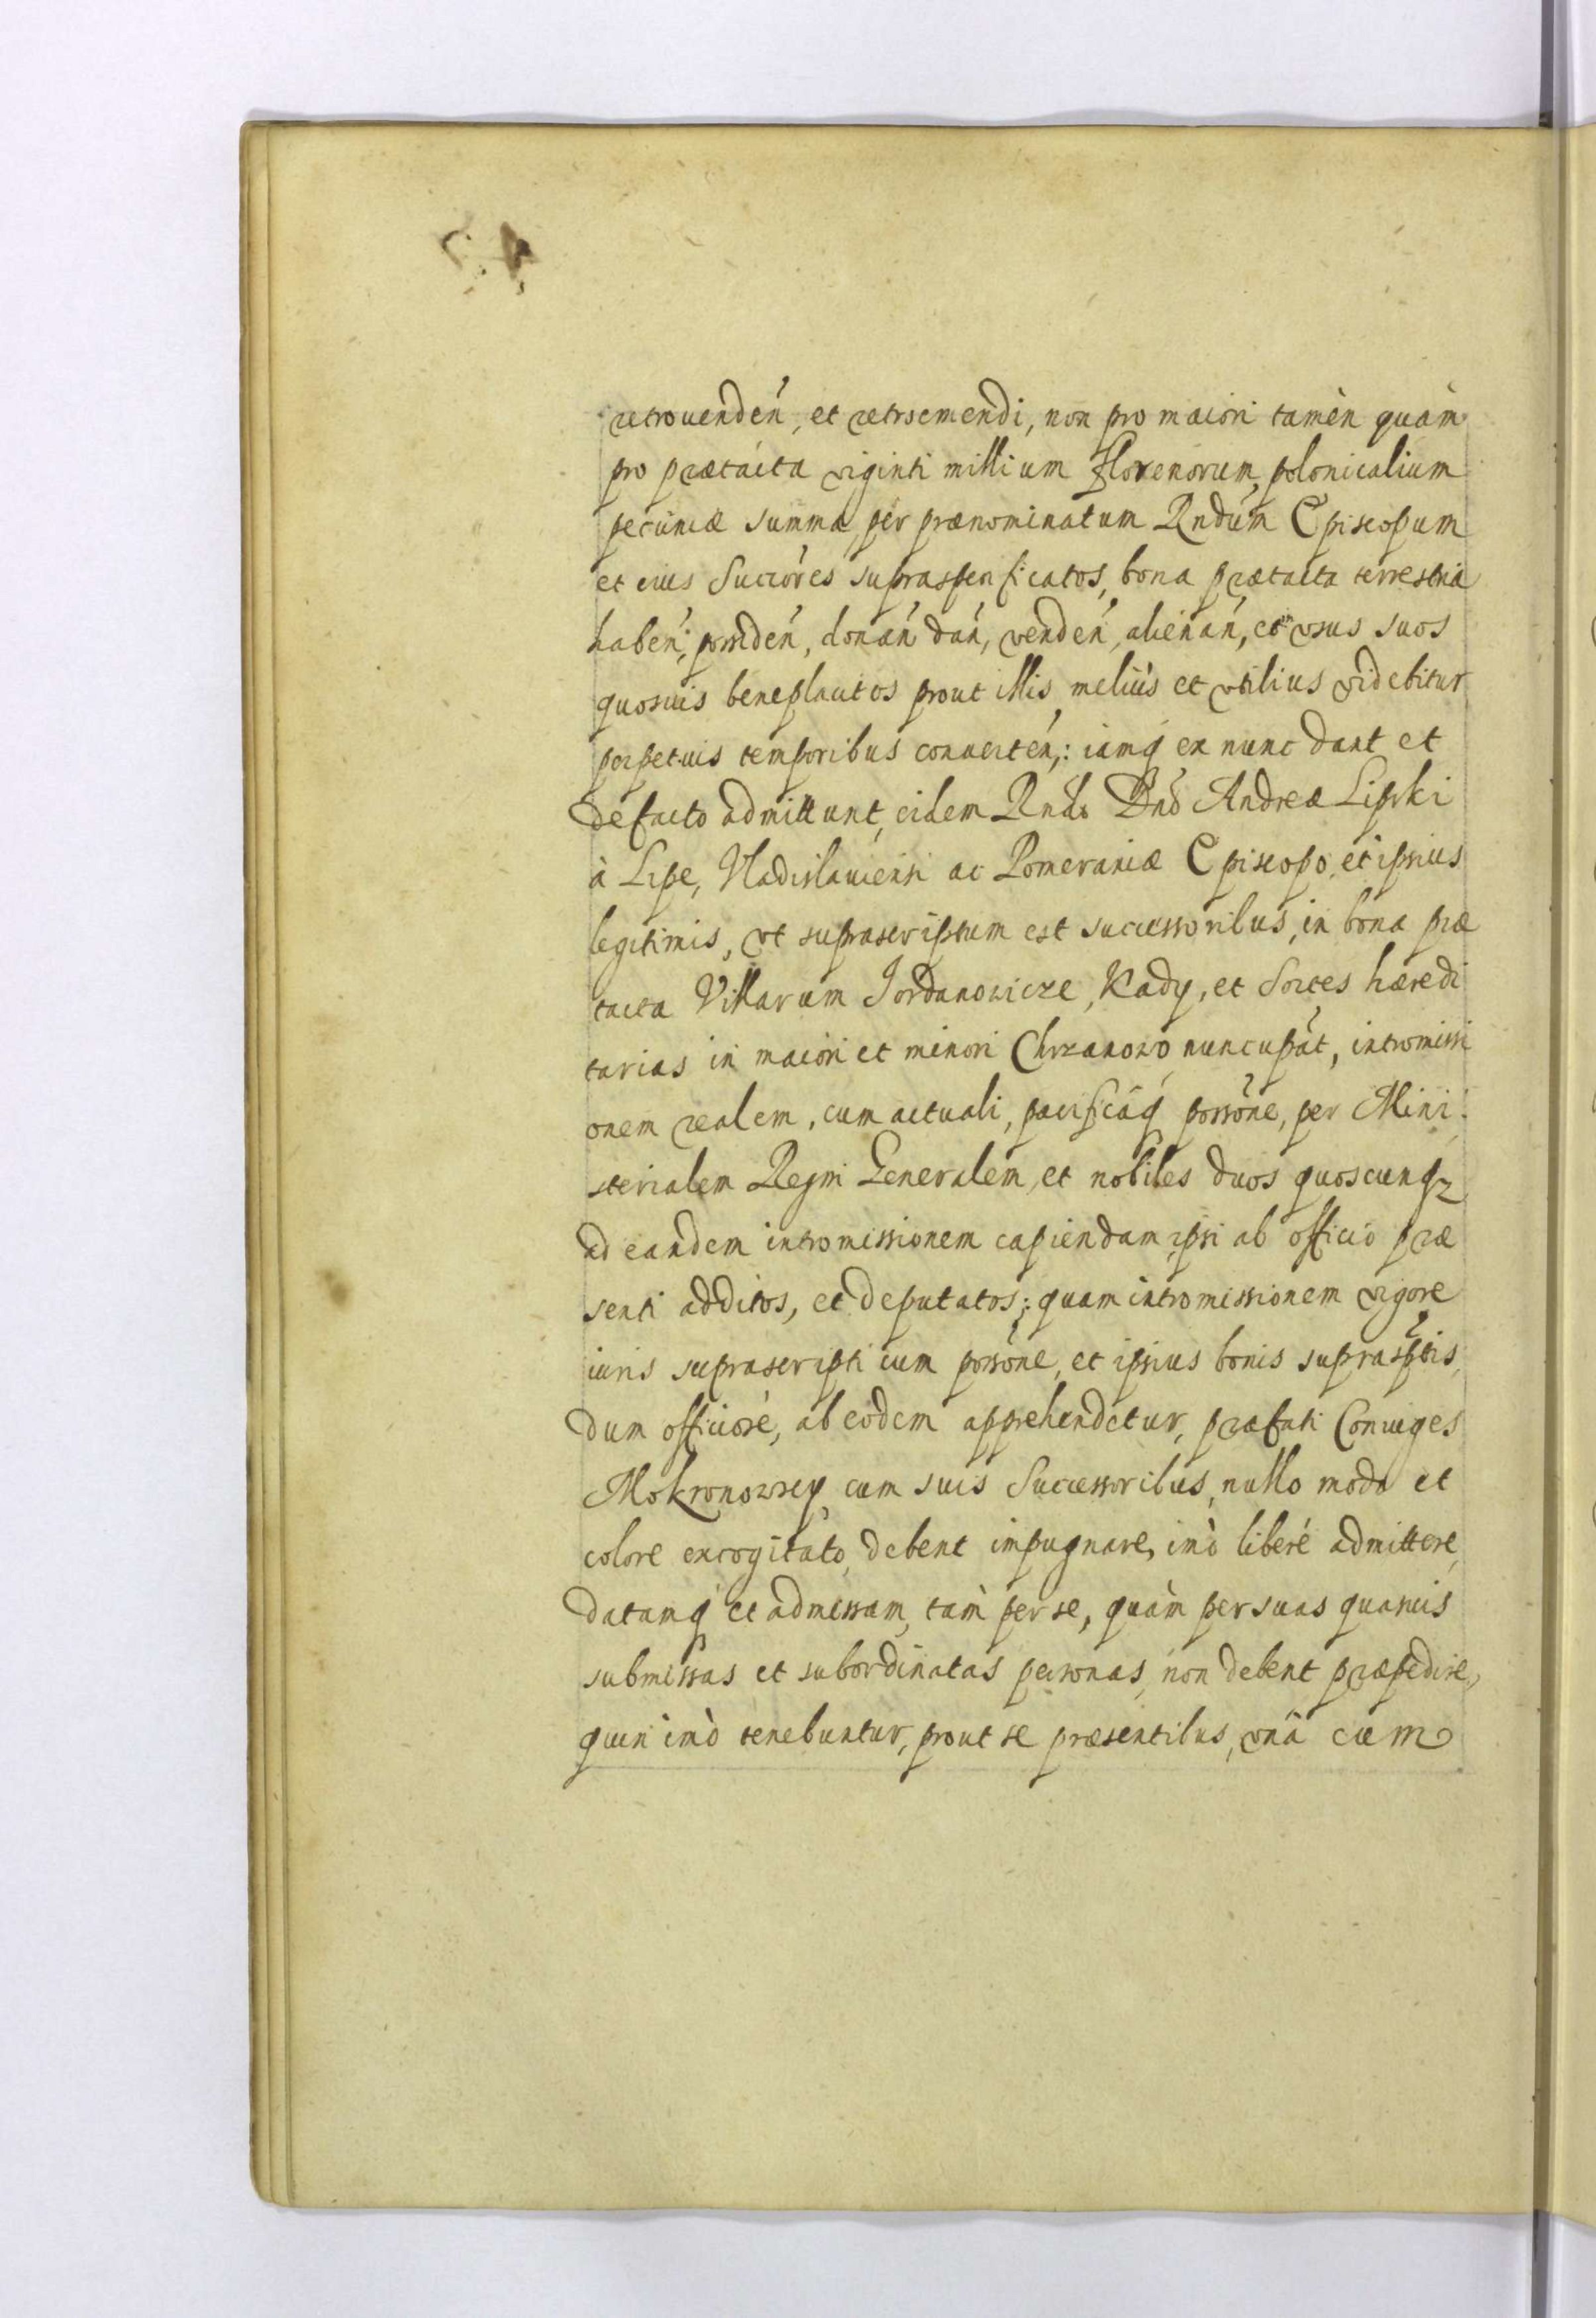 retrouendeń, et retroemendi, non pro maiori tamèn quàm
pro prætacta viginti millium florenorum polonicalium
pecuniæ summa, per prænominatum Rndum Episcopum
et eius Succōres suprasspecificatos, bona prætacta terrestria
habeń, possideń, donań dań, vendeń, alienań, et in vsus suos
quosuis beneplacitos prout illis meliùs et vtilius videbitur
perpetuis temporibus conuerteń,: iamq́ ex nunc dant et
de facto admittunt, eidem Rndo Dnō Andreæ Lipski
à Lipe, Vladislauiensi ac Pomeraniæ Episcopo, et ipsius
legitimis, vt suprascriptum est successoribus, in bona præ
tacta Villarum Jordanowicze, Kady, et Sortes hæredi
tarias in maiori et minori Chrzanowo nuncupat̄, intromissi
onem realem, cum actuali, pacificaq́ possōne, per Mini:
sterialem Regni Generalem, et nobiles duos quoscunqz
ad eandem intromissionem capiendam ipsi ab officio præ
senti additos, et deputatos; quam intromissionem vigore
iuris suprascripti cum possōne, et ipsius bonis suprasp̄tis,
dum officiosè, ab eodem apprehendetur, præfati Coniuges
Mokronowscy cum suis Successoribus, nullo modo et
colore excogitato, debent impugnare, imò liberè admittere,
datamq́ et admissam, tam̀ per se, quàm per suas quasuis
submissas et subordinatas personas, non debent præpedire,
quin imò tenebuntur, prout se præsentibus, vnà cum